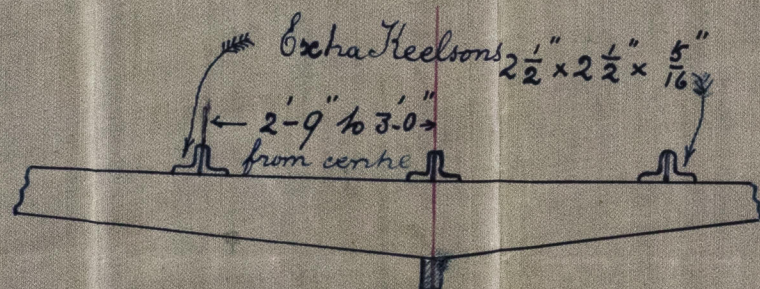 Extra Keelsons 2 1/2" x 2 1/2" x 5/16"
2'-9" to 3'-0"
from centre